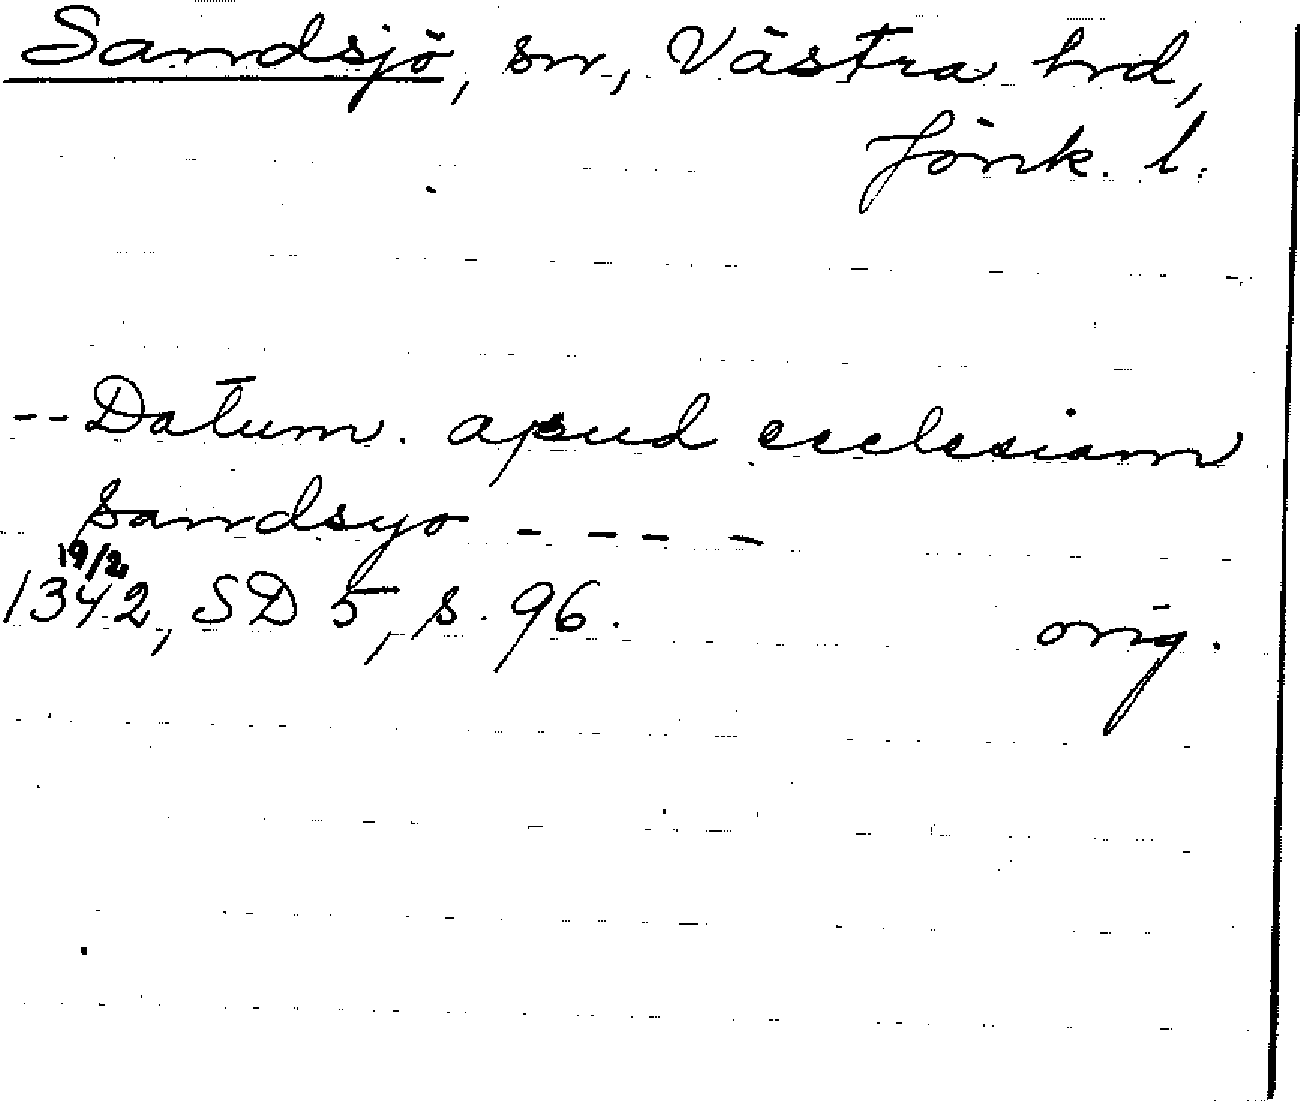 Sandsjö, sn, Västra hrd,
Jönk. l.
-- Datum. apud ecclesiam
sandsyo ----
19/2
1342, SD 5, s. 96. orig.